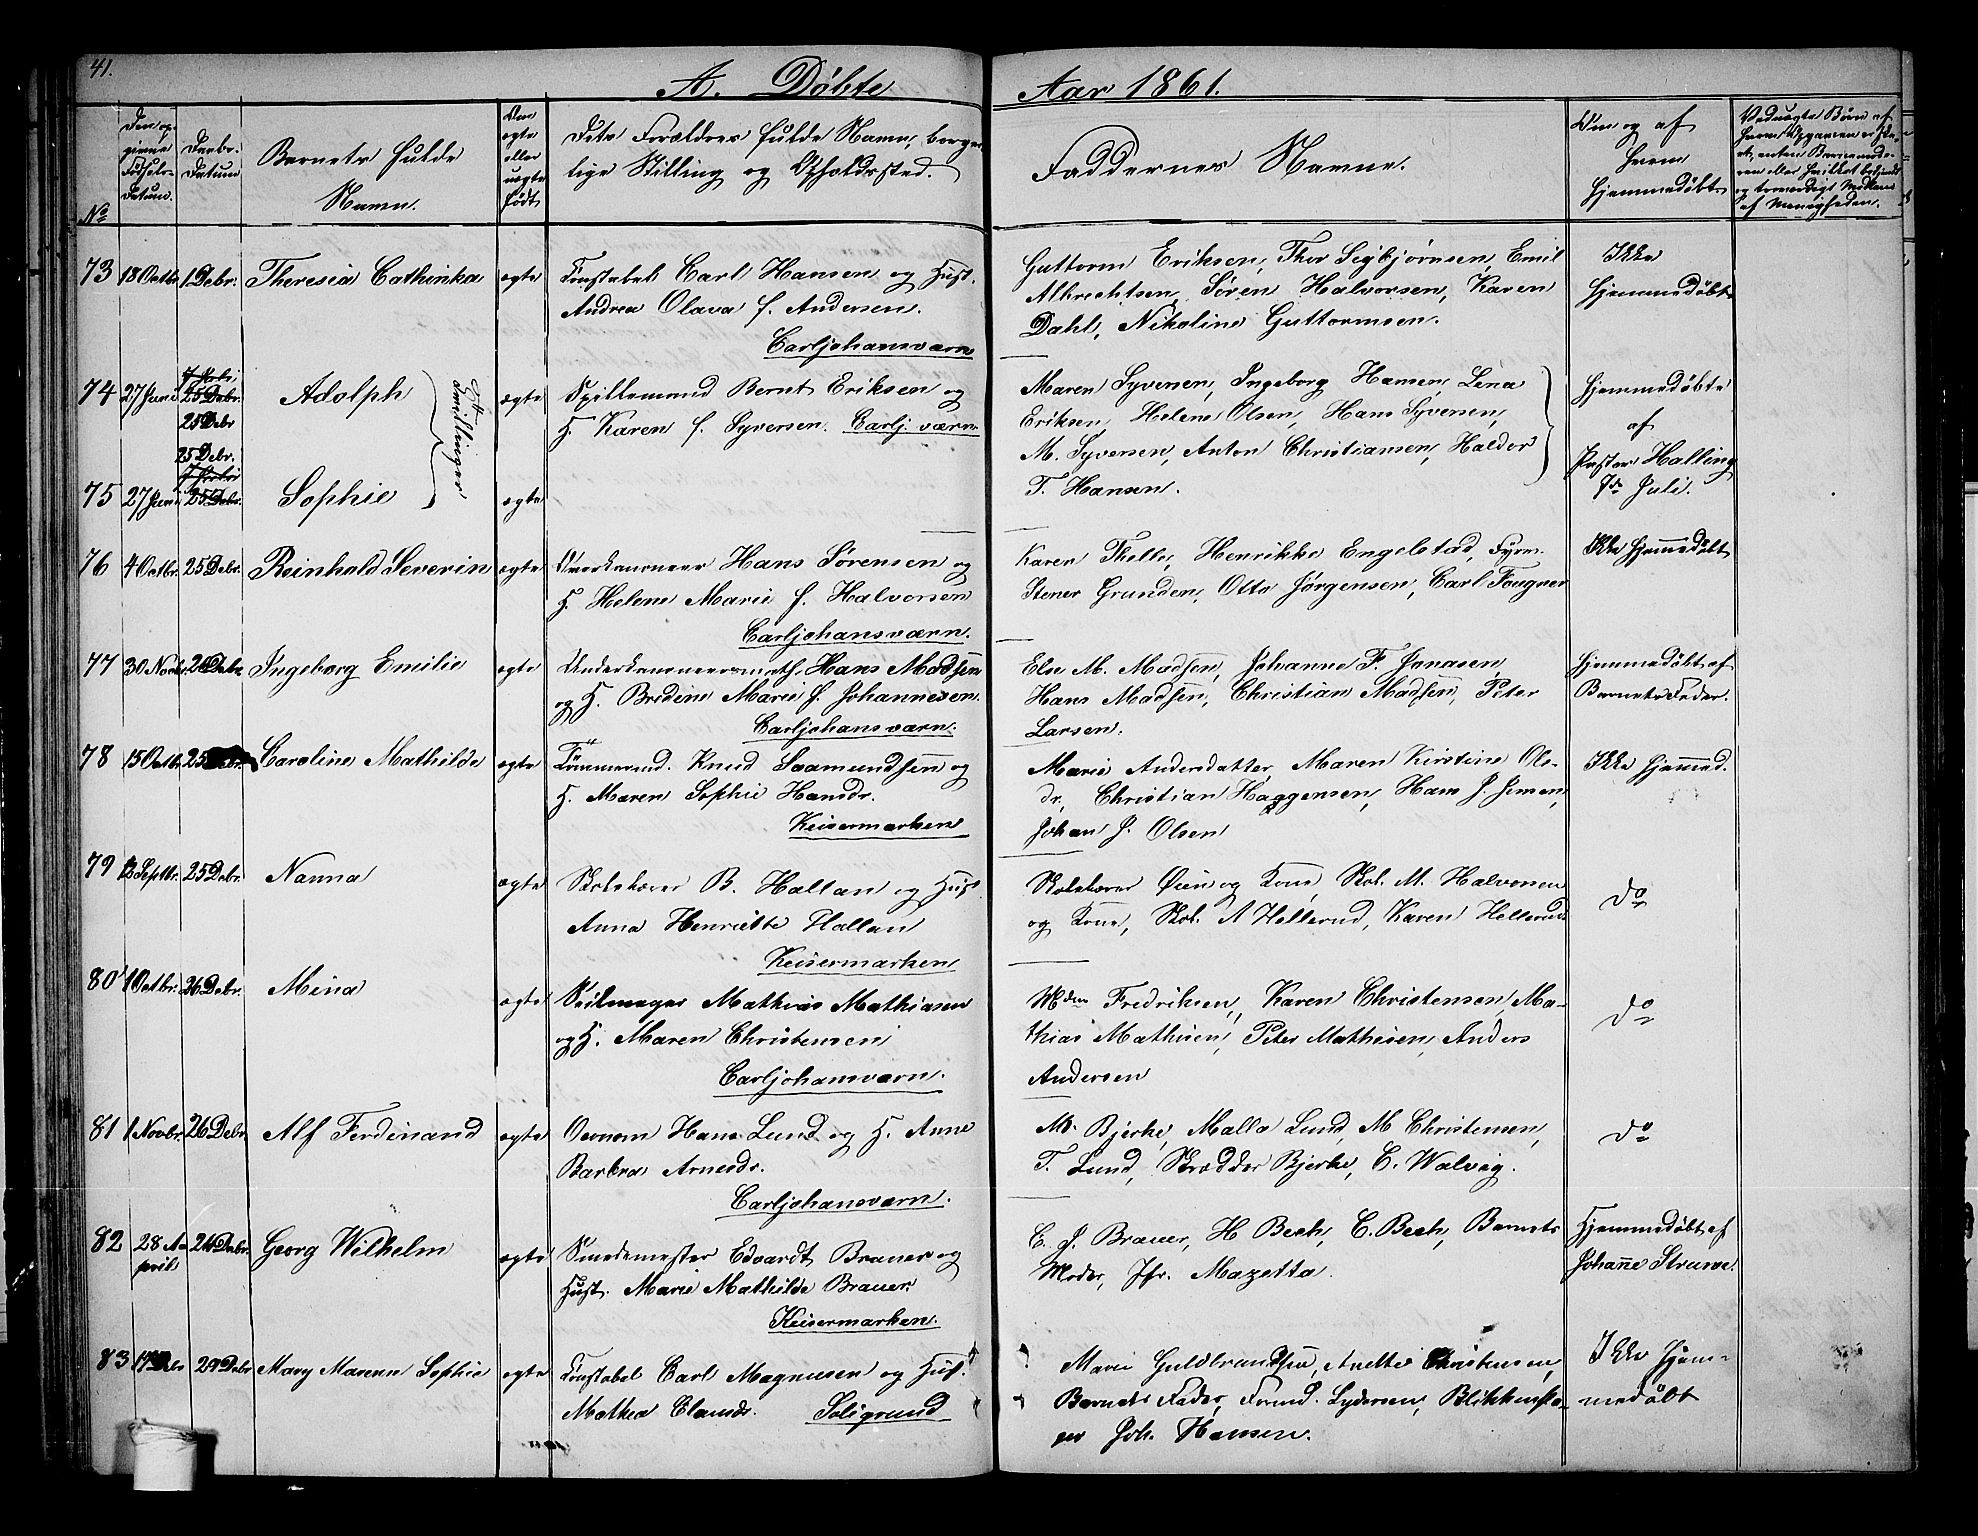 41.
A. Døbte
Aar 1861.
No
Den op-
givne
Fødsels-
Datum.
Daabs-
Datum
Barnets fulde
Navn.
Om
ægte
eller
uægte
født
Dets Forældres fulde Navne, borger-
lige Stilling og Opholdssted.
Faddernes Navne.
Om og af
hvem
hjemmedøbt
73 18 Octbr. 1. Debr. Theresia Cathinka ægte Konstabel Carl Hansen og Hust.
Andrea Olava f. Andersen.
Carljohansværn
Guttorm Eriksen, Thor Sigbjørnsen, Emil
Albrechtsen, Søren Halvorsen, Karen
Dahl, Nikoline Guttormsen.
Ikke
hjemmedøbt
74 27 Juni 25 Debr. Adolph ægte Spillemand Bernt Eriksen og
25 Debr
H. Karen f. Syversen. Carlj. værn.
Tvillinger
25 Debr.
75 27 Juni 25 Debr. Sophie ægte
Maren Syversen, Ingeborg Hansen, Lena
Eriksen, Helene Olsen, Hans Syversen,
M. Syversen, Anton Christiansen, Haldor
T. Hansen.
Hjemmedøbte
af
Pastor Halling
7de Juli.
76 4 Octbr. 25 Debr. Reinhold Severin ægte Overkanoneer Hans Sørensen og
H. Helene Marie f. Halvorsen
Carljohansværn.
Karen Thelle, Henrikke Engelstad, Fyrm.
Stener Grunden, Otto Jørgensen, Carl Fougner
Ikke hjemmedøbt
77 30 Novbr. 26 Debr. Ingeborg Emilie ægte Underkanoneersmath. Hans Madsen
og H. Bredine Marie f. Johannesen.
Carljohansværn.
Else M. Madsen, Johanne F. Jonasen,
Hans Madsen, Christian Madsen, Peter
Larsen.
Hjemmedøbt af
Barnets Fader.
78 15 Octbr. 25 Debr. Caroline Mathilde ægte Tömmermd. Knud Saamundsen og
H. Maren Sophie Hansdr.
Keisermarken
Marie Andersdatter, Maren Kirstine Ols-
dr., Christian Haggensen, Hans J. Jensen,
Johan J. Olsen
Ikke hjemmed.
79 12 Septbr. 25 Debr. Nanna ægte Skolelærer B. Hallan og Hust
Anna Henriette Hallan
Keisermarken
Skolelærer Øien og Kone, Skol. M. Halvorsen
og Kone, Skol. A Hellerud, Karen Hellerud
do
80 1 Octbr. 26 Debr. Mina ægte Seilmager Mathias Mathiasen
og H. Maren Christensen
Carljohansværn.
Mdm Fredriksen, Karen Christensen, Ma-
thias Mathisen, Peter Mathisen, Anders
Andersen
do
81 1 Novbr. 26 Debr. Alf Ferdinand ægte Oeconom Hans Lund og H. Anne
Barbra Arnesdr.
Carljohansværn.
M. Bjerke, Malla Lund, M Christensen,
T. Lund, Skrædder Bjerke, C. Walvig.
do
82 28 A-
pril. 26 Debr. Georg Wilhelm ægte Smedemester Edvardt Brauer og
Hust. Marie Mathilde Brauer.
Keisermarken.
E. J. Brauer, H Bech, C. Bech, Barnets
Moder, Jfr. Mazetta.
Hjemmedøbt af
Johanne Struwe.
83 29 Debr Mary Marenn Sophie ægte Konstabel Carl Magnusen og Hust.
Mathea Clausdr. Soligrund
Marie Guldbrandsen, Anette Christensen,
Barnets Fader, Fermd. Lydersen, Blikkensla-
ger Joh. Hansen.
Ikke hjem-
medøbt